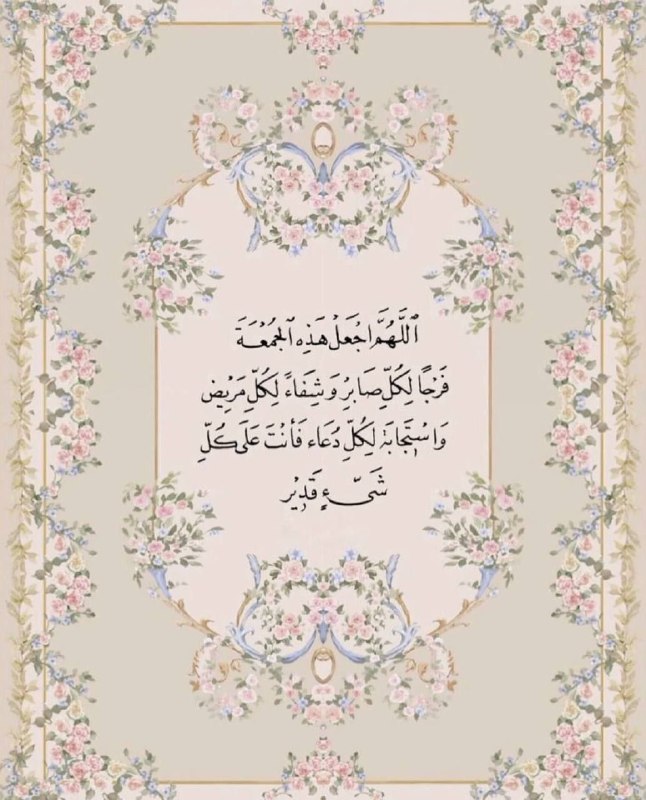 ٱللَّهُمَّ اجْعَلْ هَذِهِ ٱلجُمُعَةَ
فَرَجًا لِكُلِّ صَابِرٍ وَ شِفَاءً لِكُلِّ مَرِيْضٍ
وَاسْتِجَابَة لِكُلِّ دُعَاء فَأنْتَ عَلَى كُلِّ
شَيْءٍ قَدِيْر